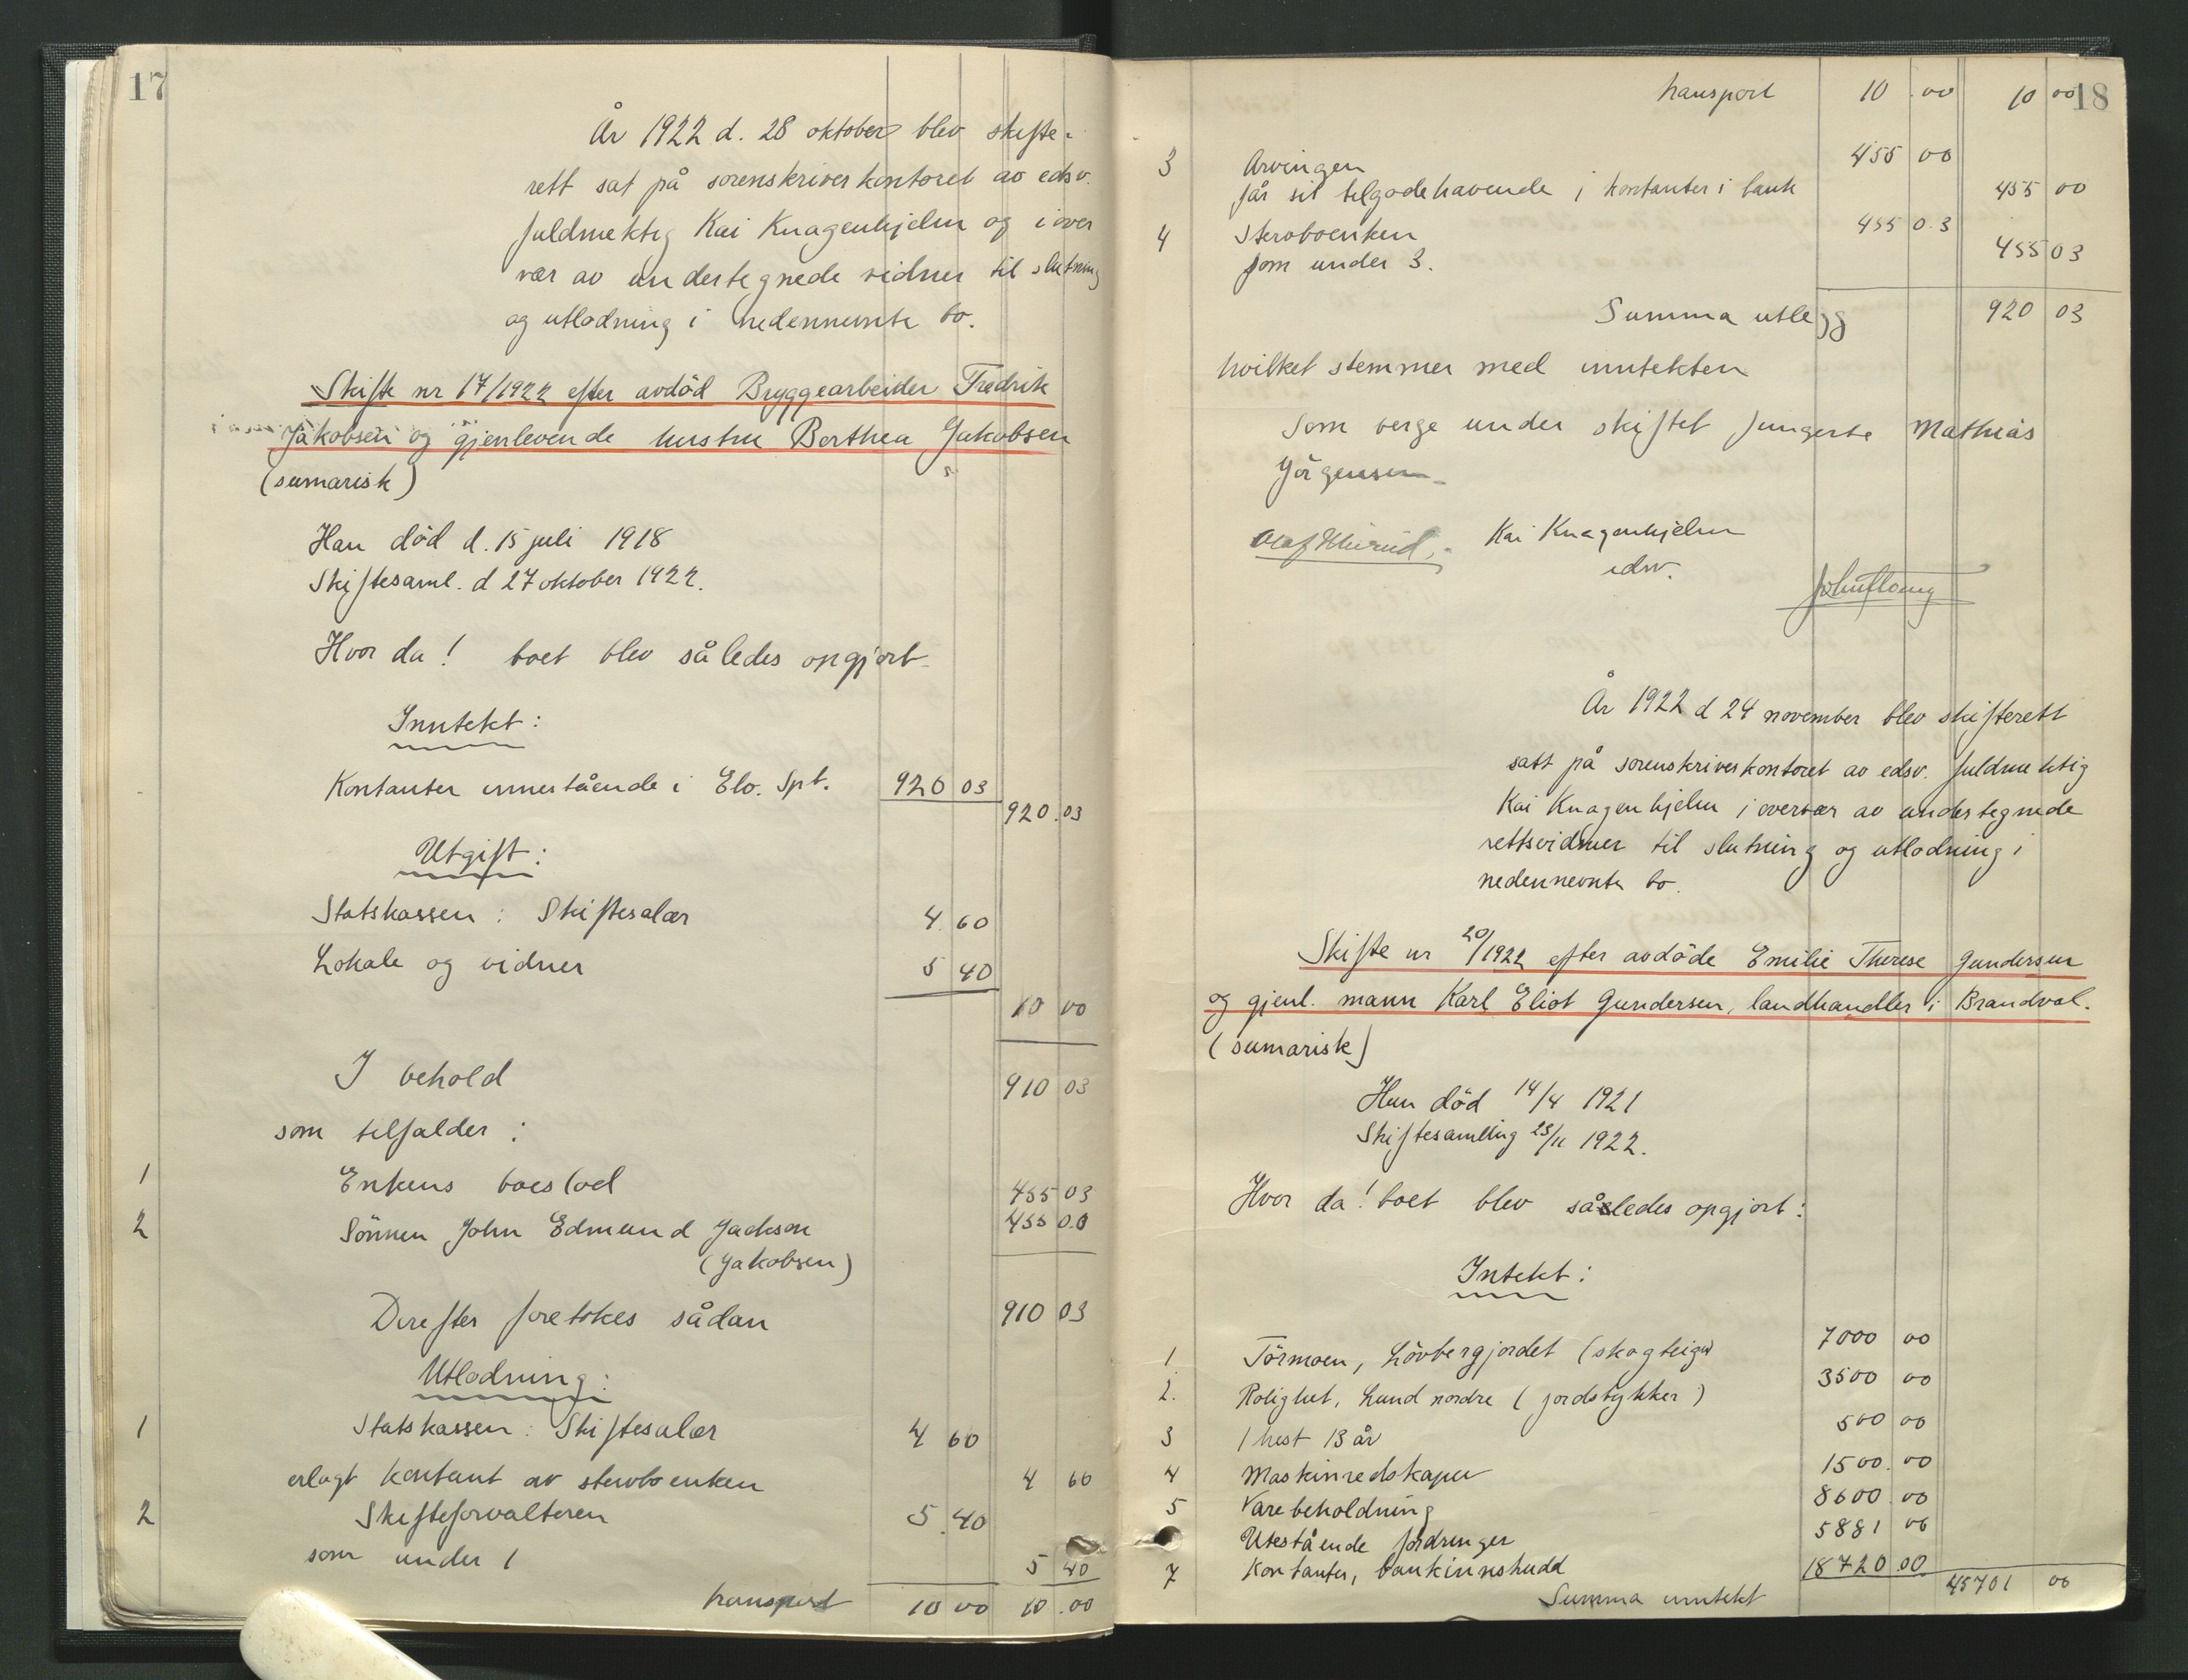 17
År 1922 d. 28 oktober blev skifte-
rett sat på sorenskriverkontoret av edsv.
fuldmektig Kai Knagenhjelm og i over
vær av undertegnede vidner til slutning
og utlodning i nedennevnte bo.
Skifte nr 17/1922 efter avdöd Bryggearbeider Fredrik
Jakobsen og gjenlevende hustru Berthea Jakobsen
(sumarisk)
Han död d. 15 juli 1918
Skiftesaml. d 27 oktober 1922.
Hvor da! boet blev således opgjort
Inntekt:
Kontanter innestående i Elv. Spb. 920 03
920.03
Utgift:
Statskassen: Skiftesalær 4 60
Lokale og vidner 5 40
10 00
I behold 910 03
som tilfalder:
1 Enkens boeslod 455 03
2 Sönnen John Edmund Jackson 455 00
(Jakobsen)
910 03
Derefter foretokes sådan
Utlodning:
1 Statskassen: Skiftesalær 4 60
erlagt kontant av stervboenken 4 60
2 Skifteforvalteren 5.40
som under 1 5 40
transport 10 00 10.00
18
transport 10.00 10 00
3 Arvingen 455 00
får sit tilgodehavende i kontanter i bank 455 00
4 Stervboenken 455 03
som under 3. 455 03
Summa utlegg 920 03
hvilket stemmer med inntekten
Som verge under skiftet fungerte Mathias
Jörgensen
Kai Knagenhjelm
edsv.
År 1922 d 24 november blev skifterett
satt på sorenskriverkontoret av edsv. fuldmektig
Kai Knagenhjelm i overvær av undertegnede
rettsvidner til slutning og utlodning i
nedennevnte bo.
Skifte nr 20/1922 efter avdöde Emilie Therese Gundersen
og gjenl. mann Karl Eliot Gundersen, landhandler i Brandval.
(sumarisk)
Hun död 14/4 1921
Skiftesamling 23/11 1922.
Hvor da! boet blev således opgjort:
Intekt:
1 Törmoen, Lövbergjordet (skogteiger) 7000 00
2. Rolighet, Lund nordre (jordstykker) 3500 00
3 1 hest 13 år 500 00
4 Maskinredskaper 1500.00
5 Varebeholdning 8600.00
Utestående fordringer 5881 00
7 Kontanter, bankinnskudd 18720.00
Summa inntekt 45701 00